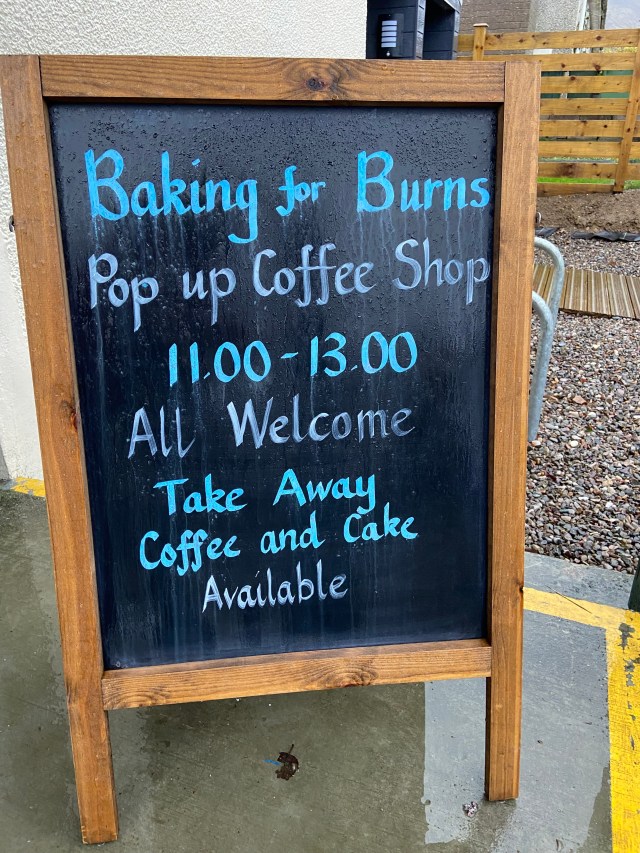 Baking for Burns
Pop up Coffee Shop
11.00 - 13.00
All Welcome
Take Away
Coffee and Cake
Available